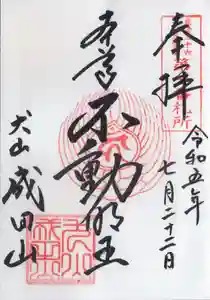 奉拝
令和五年
七月二十二日
本尊
不動明王
犬山
成田山